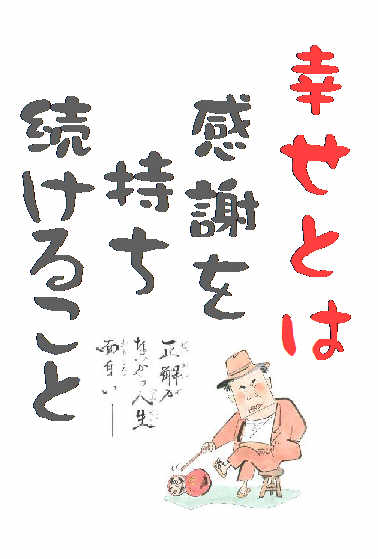 幸せとは
感謝を
持ち
続けること
正解が
ないから人生
面白い